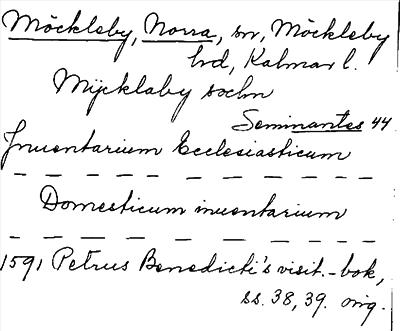 Möckleby, Norra, sn, Möckleby
hd, Kalmar l.
Mÿcklaby sochn
Seminantes 44
Inuentarium Ecclesiasticum
— — — — — — — — —
Domesticum inuentarium
— — — — — — — — —
1591 Petrus Benedicti's visit.-bok,
ss. 38, 39. orig.